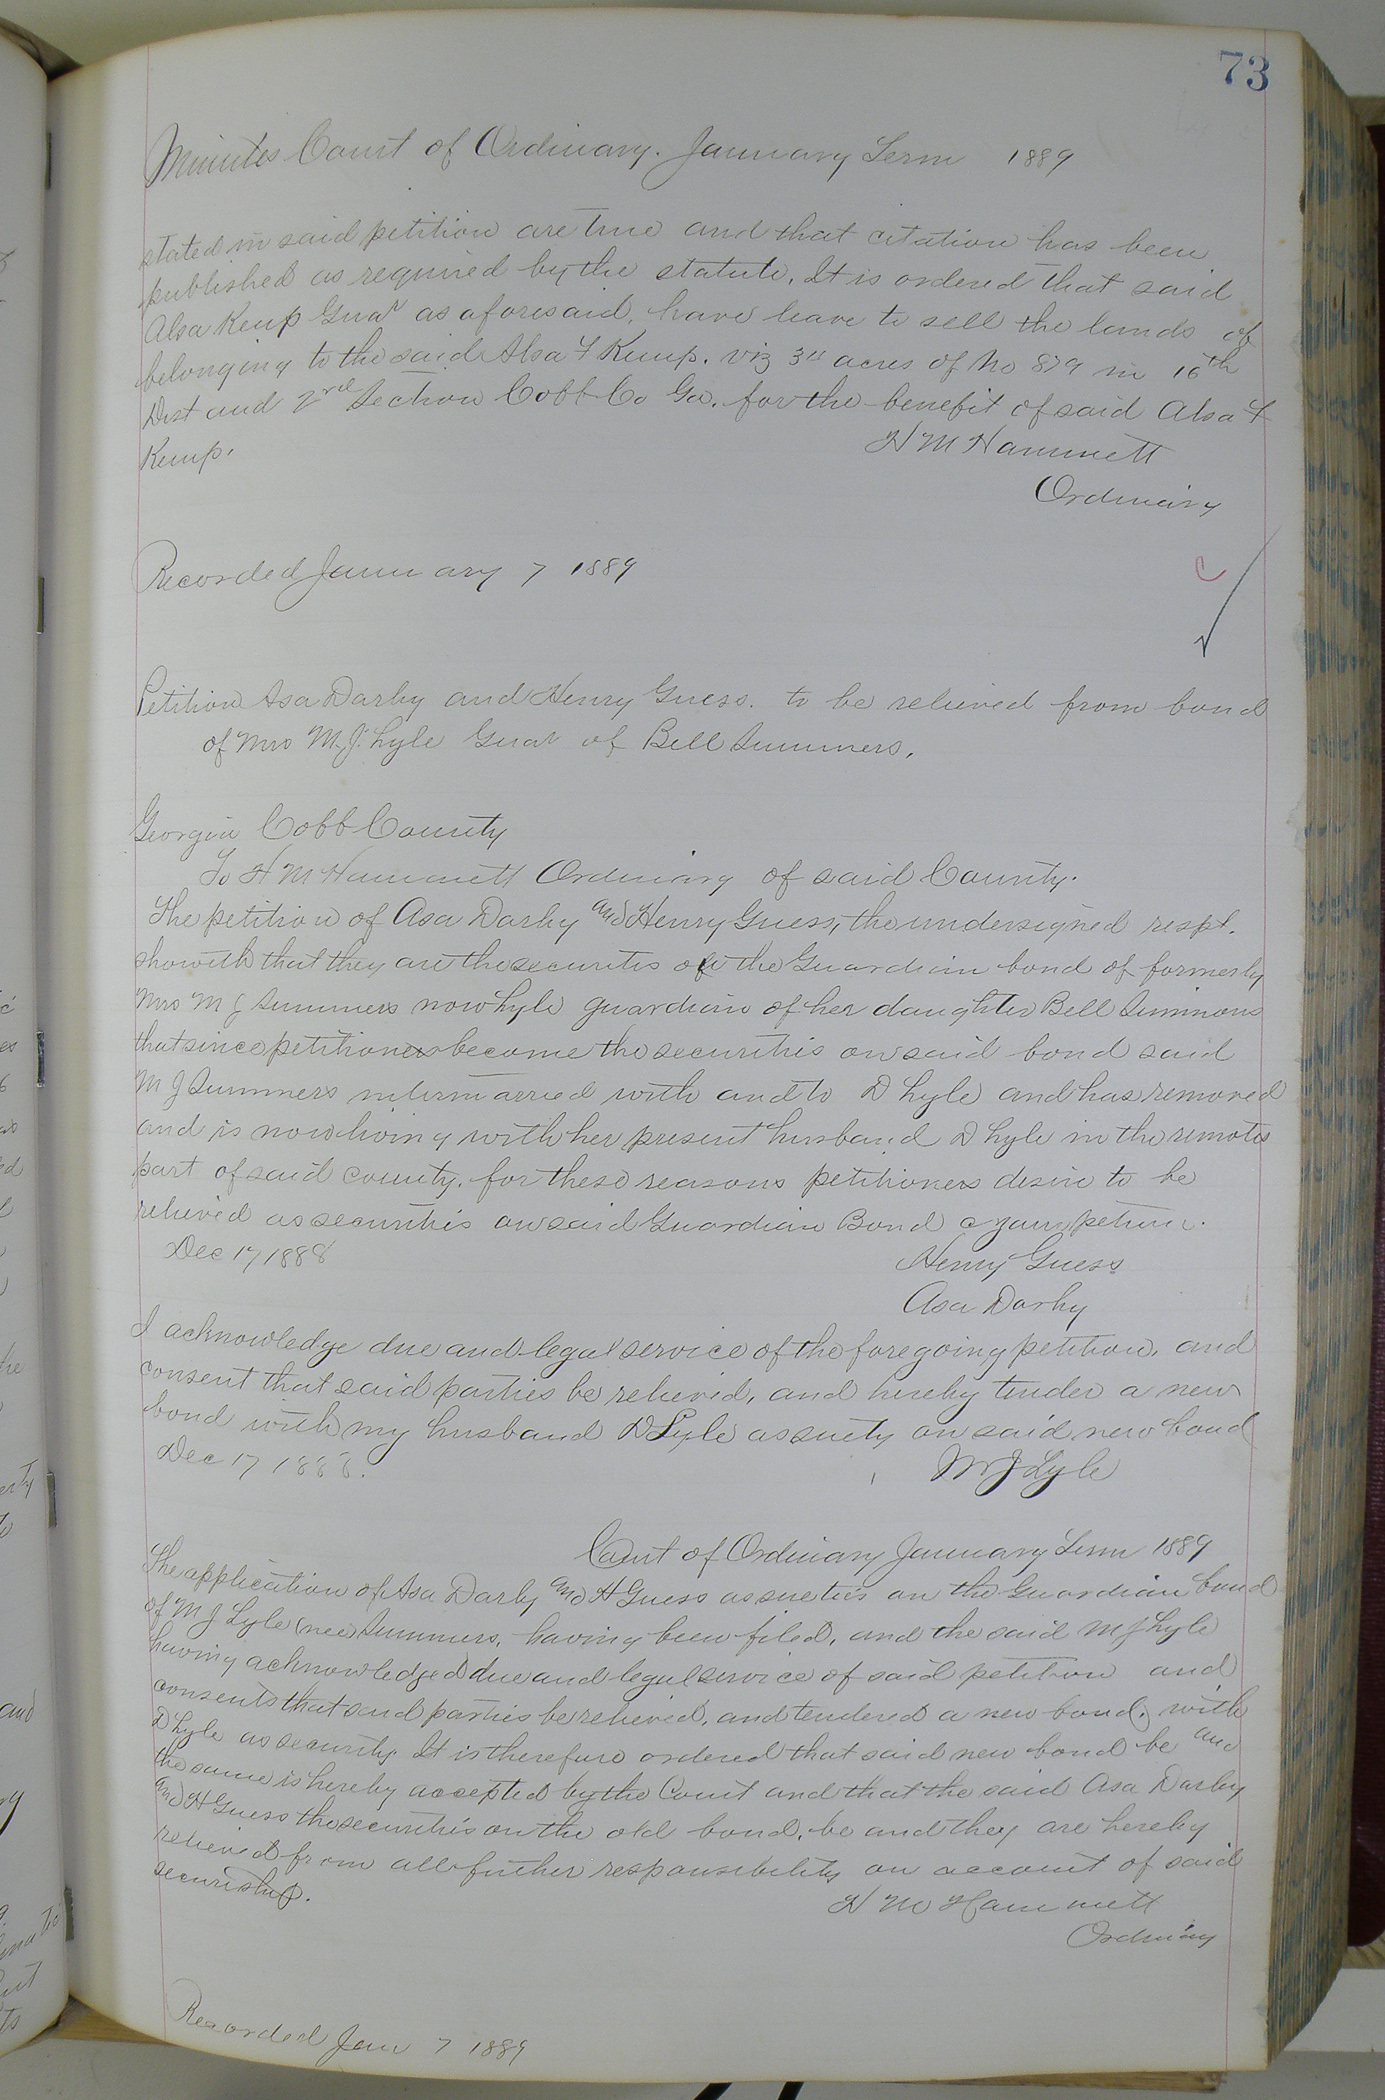 73
Minutes Court of Ordinary. January Term 1889
stated in said petition are true and that citation has been
published as required by the statute. It is ordered that said
Alsa Kemp Guar as aforesaid, have leave to sell the lands of
belonging to the said Alsa F Kemp. viz acres of No 879 in 16th
Dist and 2nd Section Cobb Co Ga. for the benefit of said Alsa F
Kemp.
H M Hammett
Ordinary
Recorded January 7 1889
Petition Asa Darby and Henry Guess. to be relieved from bond
of Mrs M. J. Lyle Guar of Bell Summers.
Georgia Cobb County
To H M Hammett Ordinary of said County.
The petition of Asa Darby and Henry Guess, the undersigned respt.
showeth that they are the securitis on the Guardian bond of formerly
Mrs M J Summers now Lyle guardian of her daughter Bell Simmons
that since petitioners become the securitis on said bond said
M J Summers intermarried with and to D Lyle and has removed
and is now living with her present husband D Lyle in the remotes
part of said county. for these reasons petitioners desire to be
relieved as securitis on said Guardian Bond
Dec 17 1888
Henry Guess
Asa Darby
I acknowledge due and legal service of the foregoing petition. and
consent that said parties be relieved, and hereby tender a new
bond with my husband D Lyle as suety on said new bond
Dec 17 1888.
M J Lyle
Court of Ordinary January Term 1889
The application of Asa Darby and H Guess as sueties on the Guardian bond
of M J Lyle (nee) Summers. having been filed, and the said M J Lyle
having acknowledged due and legal service of said petition and
consents that said parties be relieved, and tendered a new bond, with
D Lyle as security. It is therefore ordered that said new bond be and
the same is hereby accepted by the Court and that the said Asa Darby
and H Guess the securitis on the old bond, be and they are hereby
relieved from all further responsibility on account of said
securiship.
H M Hammett
Ordinary
Recorded Jan 7 1889